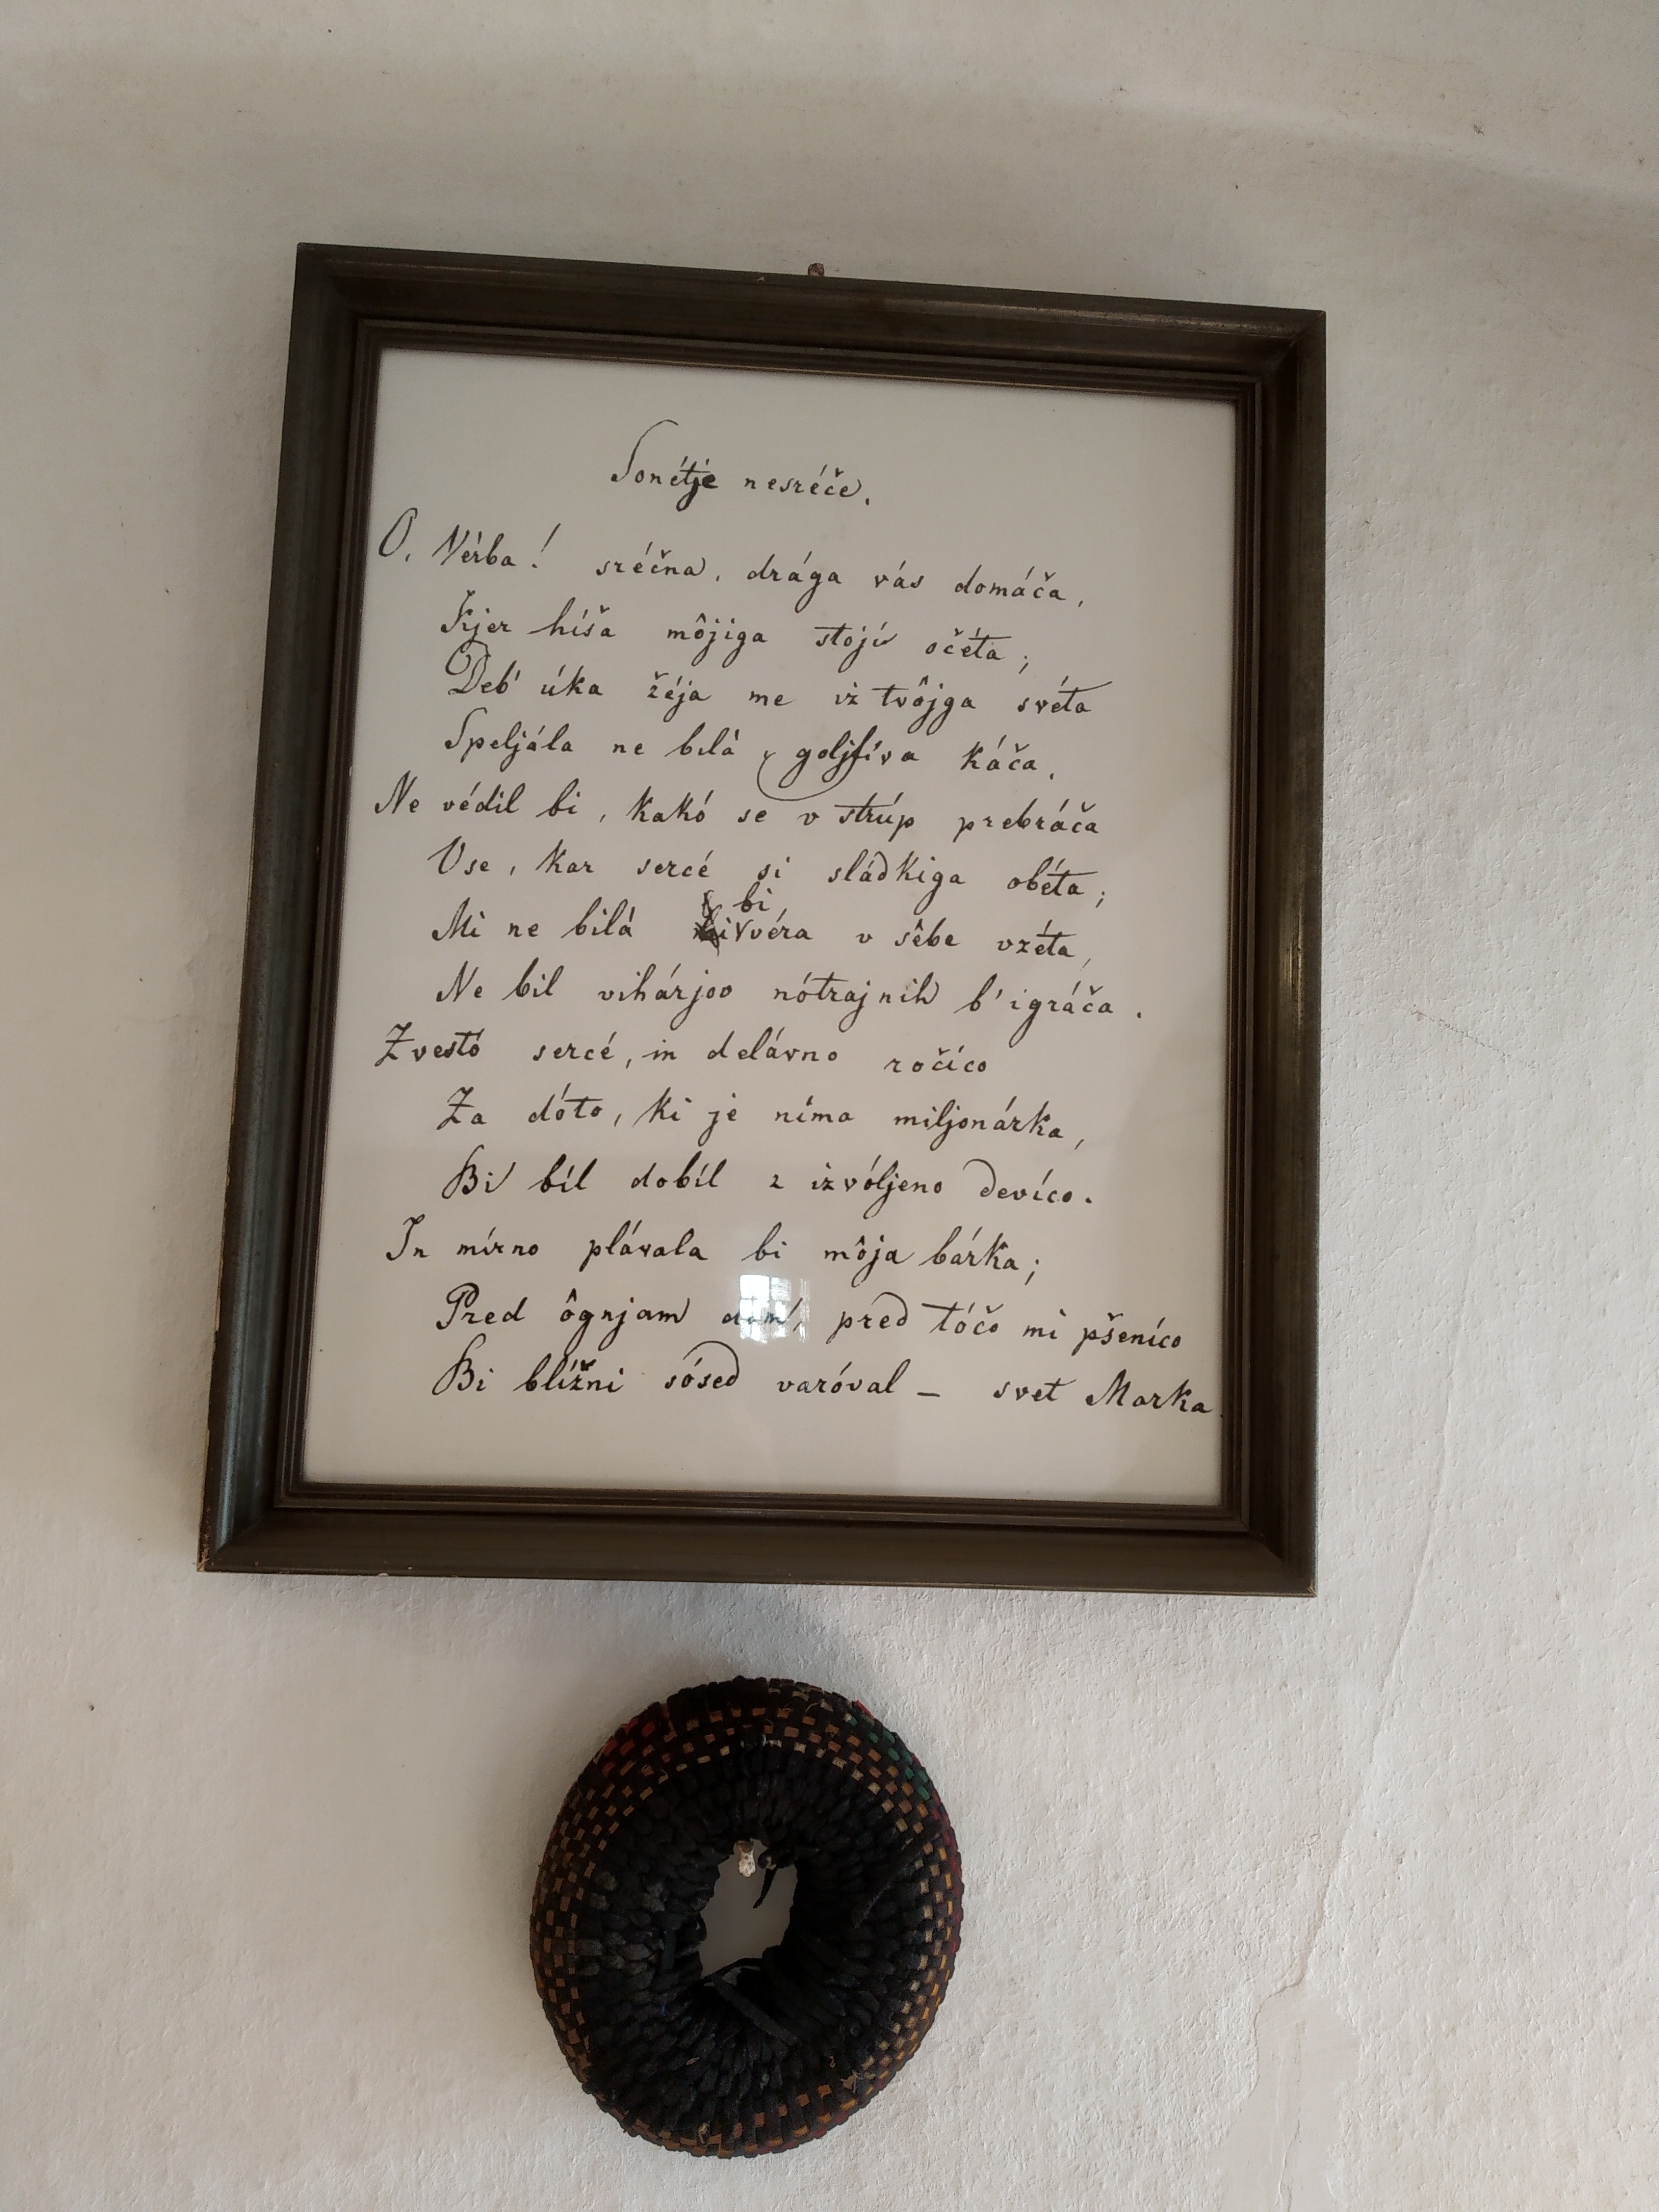 Sonétje nesréče.
O, Vérba! sréčna, drága vás domáča,
Kjer híša môjiga stojí očéta;
Deb' úka žéja me iz tvôjga svéta
Speljála ne bilà, goljfíva káča.
Ne védil bi, kakó se v strúp prebráča
Vse, kar sercé si sládkiga obéta;
bi
Mi ne bilà véra v sêbe vzéta,
Ne bil vihárjov nótrajnih b' igráča.
Zvestó sercé, in delávno ročíco
Za dóto, ki je níma miljonárka,
Bi bíl dobíl z izvóljeno devíco.
In mírno plávala bi môja bárka;
Pred ôgnjam dom, pred tóčo mi pšeníco
Bi blížni sósed varóval – svet Marka